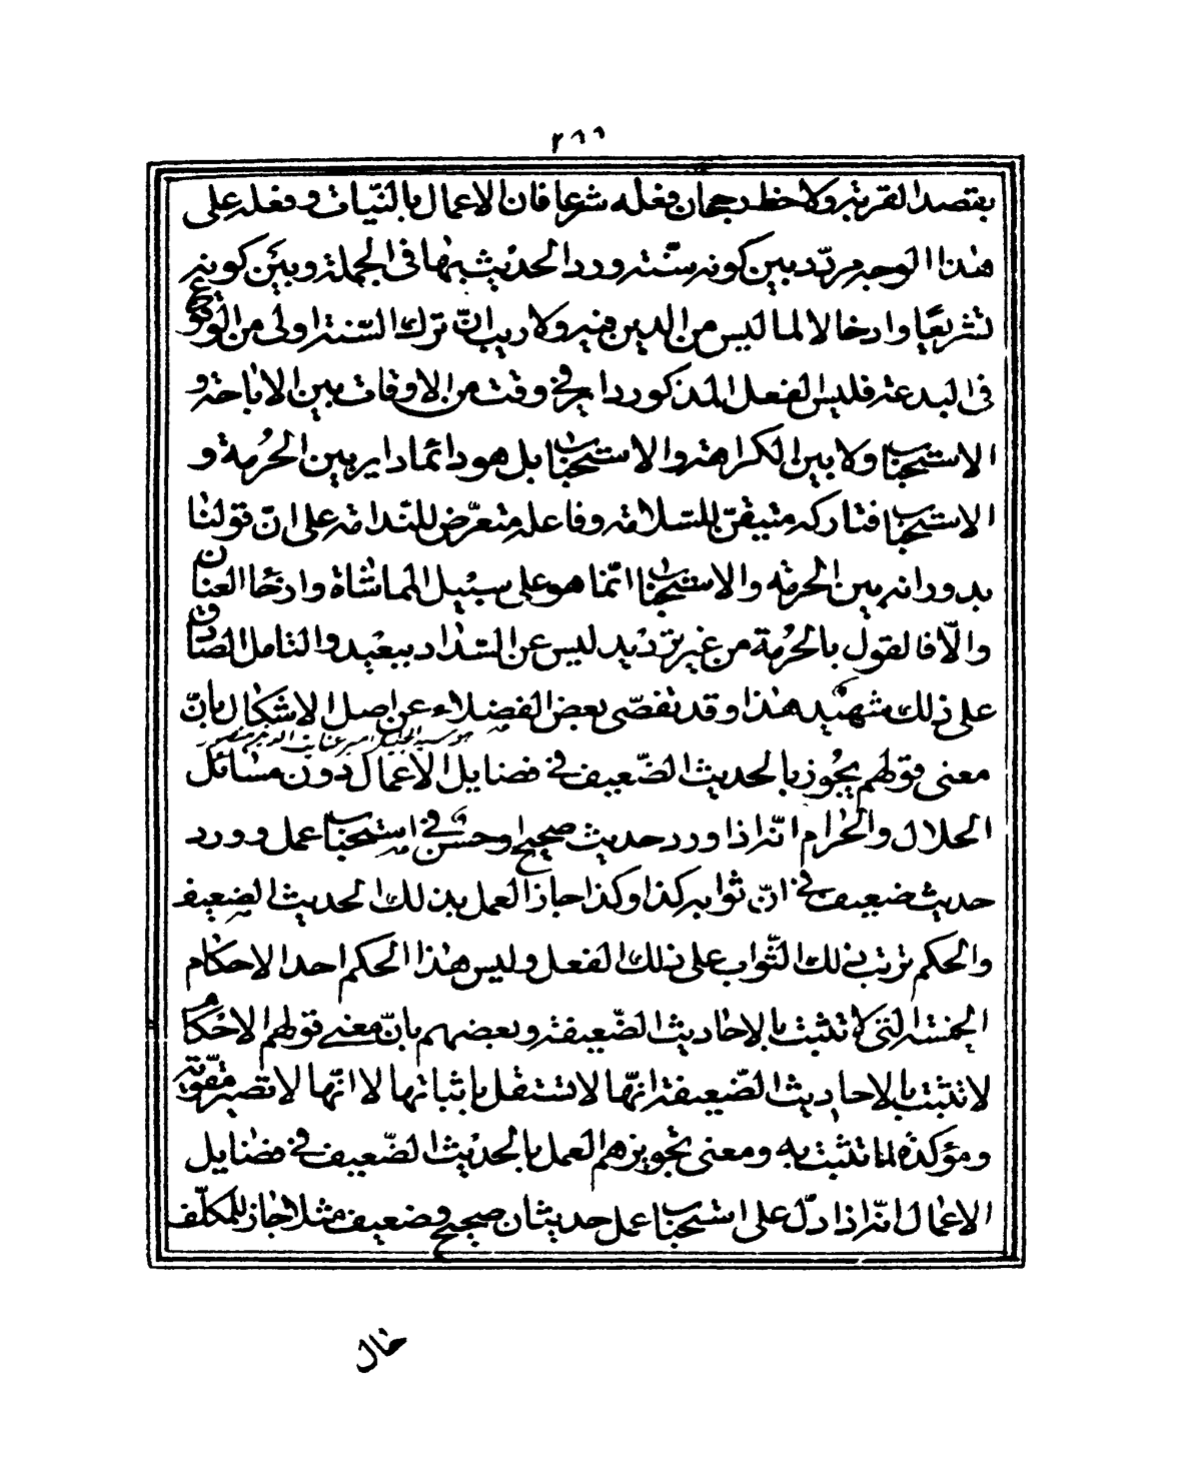 بقصد القربة ولاحظ رجحان فعله شرعا فان الاعمال بالنيات وفعله على
هذا الوجه مردّد بين كونه سنّته ورد الحديث بها فى الجملة وبين كونه
تشريعًا وادخالا لما ليس من الدين فيه ولا ريب انّ ترك السّنة اولى من الوقوع
فى البدعة فليس الفعل المذكور داير فى وقت من الاوقات بين الاباحة و
الاستحباب ولا بين الكراهة والاستحباب بل هو دائما داير بين الحُرمة و
الاستحباب فتاركه متيقنّ للسّلامة وفاعله متعرّض للنّدامة على انّ قولنا
بدورانه بين الحرمة والاستحباب انّما هو على سبيل المماشاة وارخاء العنان
والّا فالقول بالحُرمة من غير ترديد ليس عن السّداد ببعيد والتامل الصّادق
على ذلك شهيد هذا وقد تفصّى بعض الفضلاء عن اصل الاشكال بانّ
معنى قولهم يجُوز بالحديث الضّعيف فى فضايل الاعمال دون مسائل
الحلال والحرام انّه اذا ورد حديث صحيح او حسن فى استحباب عمل وورد
حديث ضعيف فى انّ ثوابه كذا وكذا جاز العمل بذلك الحديث الضعيف
والحكم بترتب ذلك الثّواب على ذلك الفعل وليس هذا الحكم احد الاحكام
الخمسة التى لا تثبت بالاحاديث الضّعيفة وبعضهم بانّ معنى قولهم الاحكام
لا تثبت بالاحاديث الضّعيفة انّها لا تستقل باثباتها لا انّها لا تصير مقوّية
ومؤكدة لما تثبت به ومعنى تجويزهم العمل بالحديث الضّعيف فى فضايل
الاعمال انّه اذا دلّ على استحباب عمل حديثان صحيح وضعيف مثلا جاز للمكلّف
حال